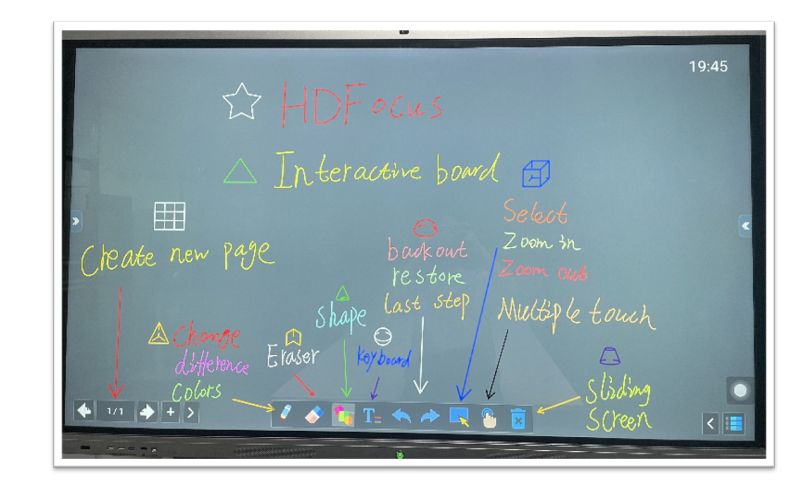 19:45
HDFocus
Interactive board
Create new page
back out
restore
last step
Select
Zoom in
Zoom out
Multiple touch
Change
difference
Colors
Eraser
Shape
keyboard
Sliding
Screen
1/1
T